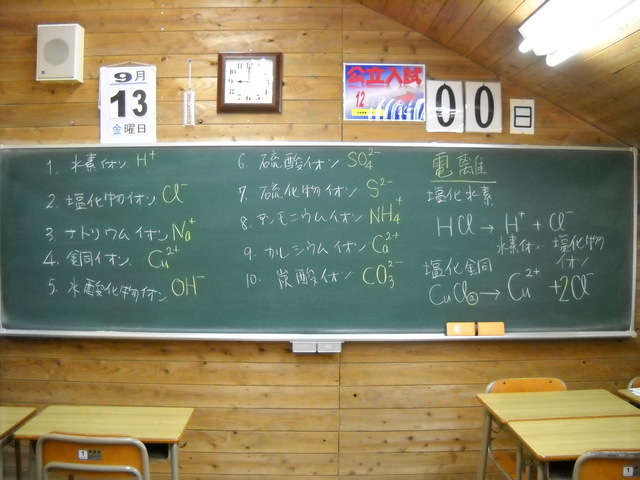 9月
13
金曜日
公立入試
12
00
日
1. 水素イオン H⁺
2. 塩化物イオン Cl⁻
3. ナトリウムイオン Na⁺
4. 銅イオン Cu²⁺
5. 水酸化物イオン OH⁻
6. 硫酸イオン SO₄²⁻
7. 硫化物イオン S²⁻
8. アンモニウムイオン NH₄⁺
9. カルシウムイオン Ca²⁺
10. 炭酸イオン CO₃²⁻
電離
塩化水素
HCl → H⁺ + Cl⁻
水素イオン 塩化物イオン
塩化銅
CuCl₂ → Cu²⁺ + 2Cl⁻